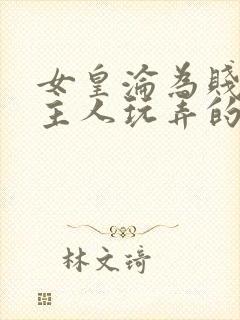 女皇淪為賤
主人玩弄的
林文琦